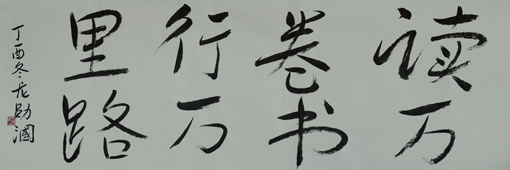 读万
卷书
行万
里路
丁酉冬龙勋国